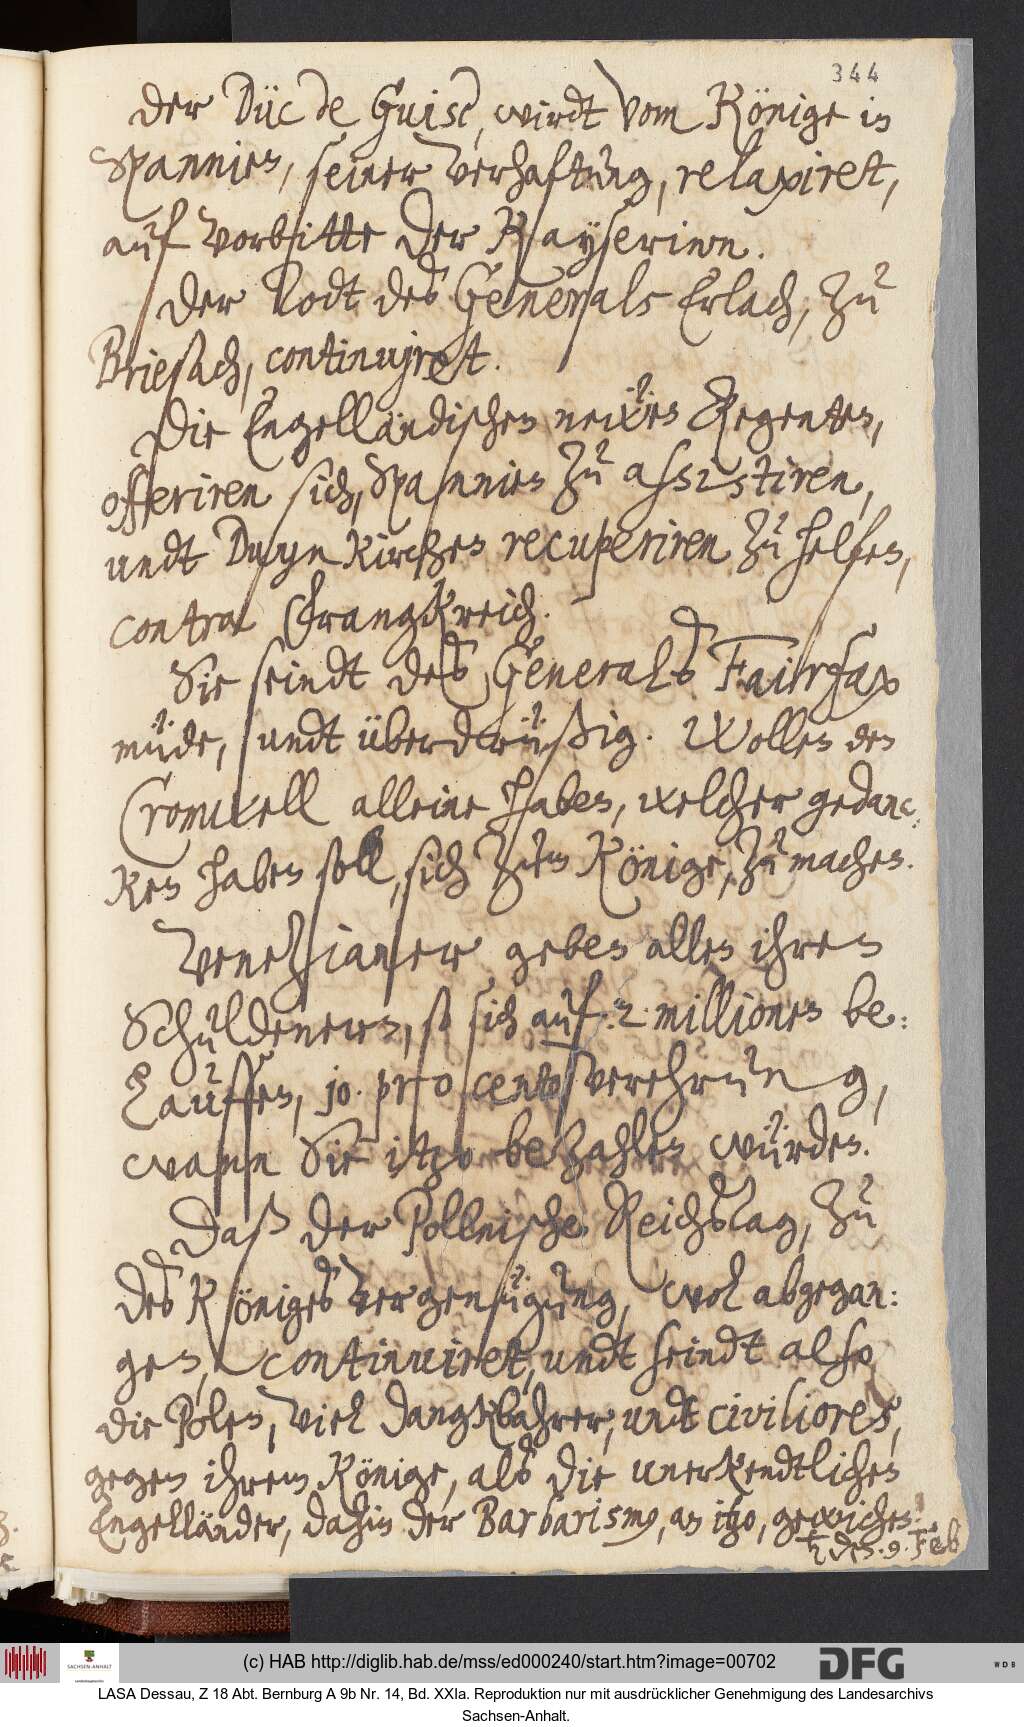 344
Der Düc de Guise, wirdt vom Könige in
Spannien, seiner verhaftung, relaxiret,
auf vorbitte der Kayserinn.
Der Todt des Generals Erlach, zu
Briesach, continuiret.
Die Engelländischen neẅen Regenten,
offeriren sich, Spannien zu assistiren,
undt Duynkirchen recuperiren zu helfen,
contra Frangkreich.
Sie seindt des Generals Fairfax
müde, undt überdrüßig. Wollen den
Cromwell alleine haben, welcher gedanc:
ken haben soll, sich zum Könige, zu machen.
Venetzianer geben allen ihren
Schuldenern, so sich auf: 2 millionen be:
lauffen, 10. pro cento verehrung,
wann Sie itzo bezahlen würden.
Daß der Pollnische Reichstag, zu
des Königes vergenügung, wol abgegan:
gen, continuiret, undt seindt also
die Polen, viel dangkbahrer, undt civiliores,
gegen ihrem Könige, als die unerkendtlichen
Engelländer, dahin der Barbarismus, an itzo, gewichen.
♄ den. 9. Feb
(c) HAB http://diglib.hab.de/mss/ed000240/start.htm?image=00702
SACHSEN-ANHALT
DFG
WDB
LASA Dessau, Z 18 Abt. Bernburg A 9b Nr. 14, Bd. XXIa. Reproduktion nur mit ausdrücklicher Genehmigung des Landesarchivs
Sachsen-Anhalt.